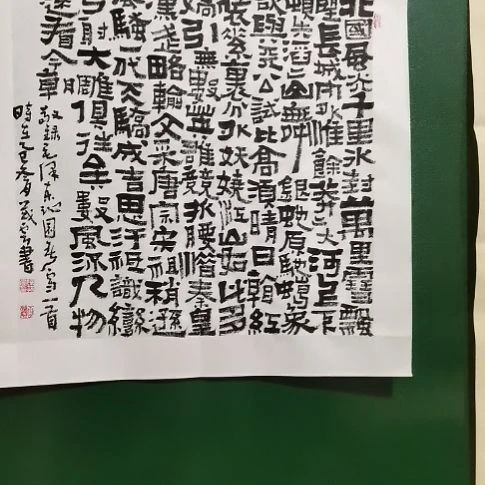 北國風光千里冰封萬里雪飄
望長城內外惟餘莽莽大河上下
頓失滔滔山舞銀蛇原馳蠟象
與天公試比高須晴日看紅
裝素裹分外妖嬈江山如此多
嬌引無數英雄競折腰惜秦皇
武略輸文采唐宗宋祖稍遜
風騷一代天驕成吉思汗祗識彎
射大雕俱往矣數風流人物
還看今朝
敬錄毛澤東沁園春雪一首
時在乙 書